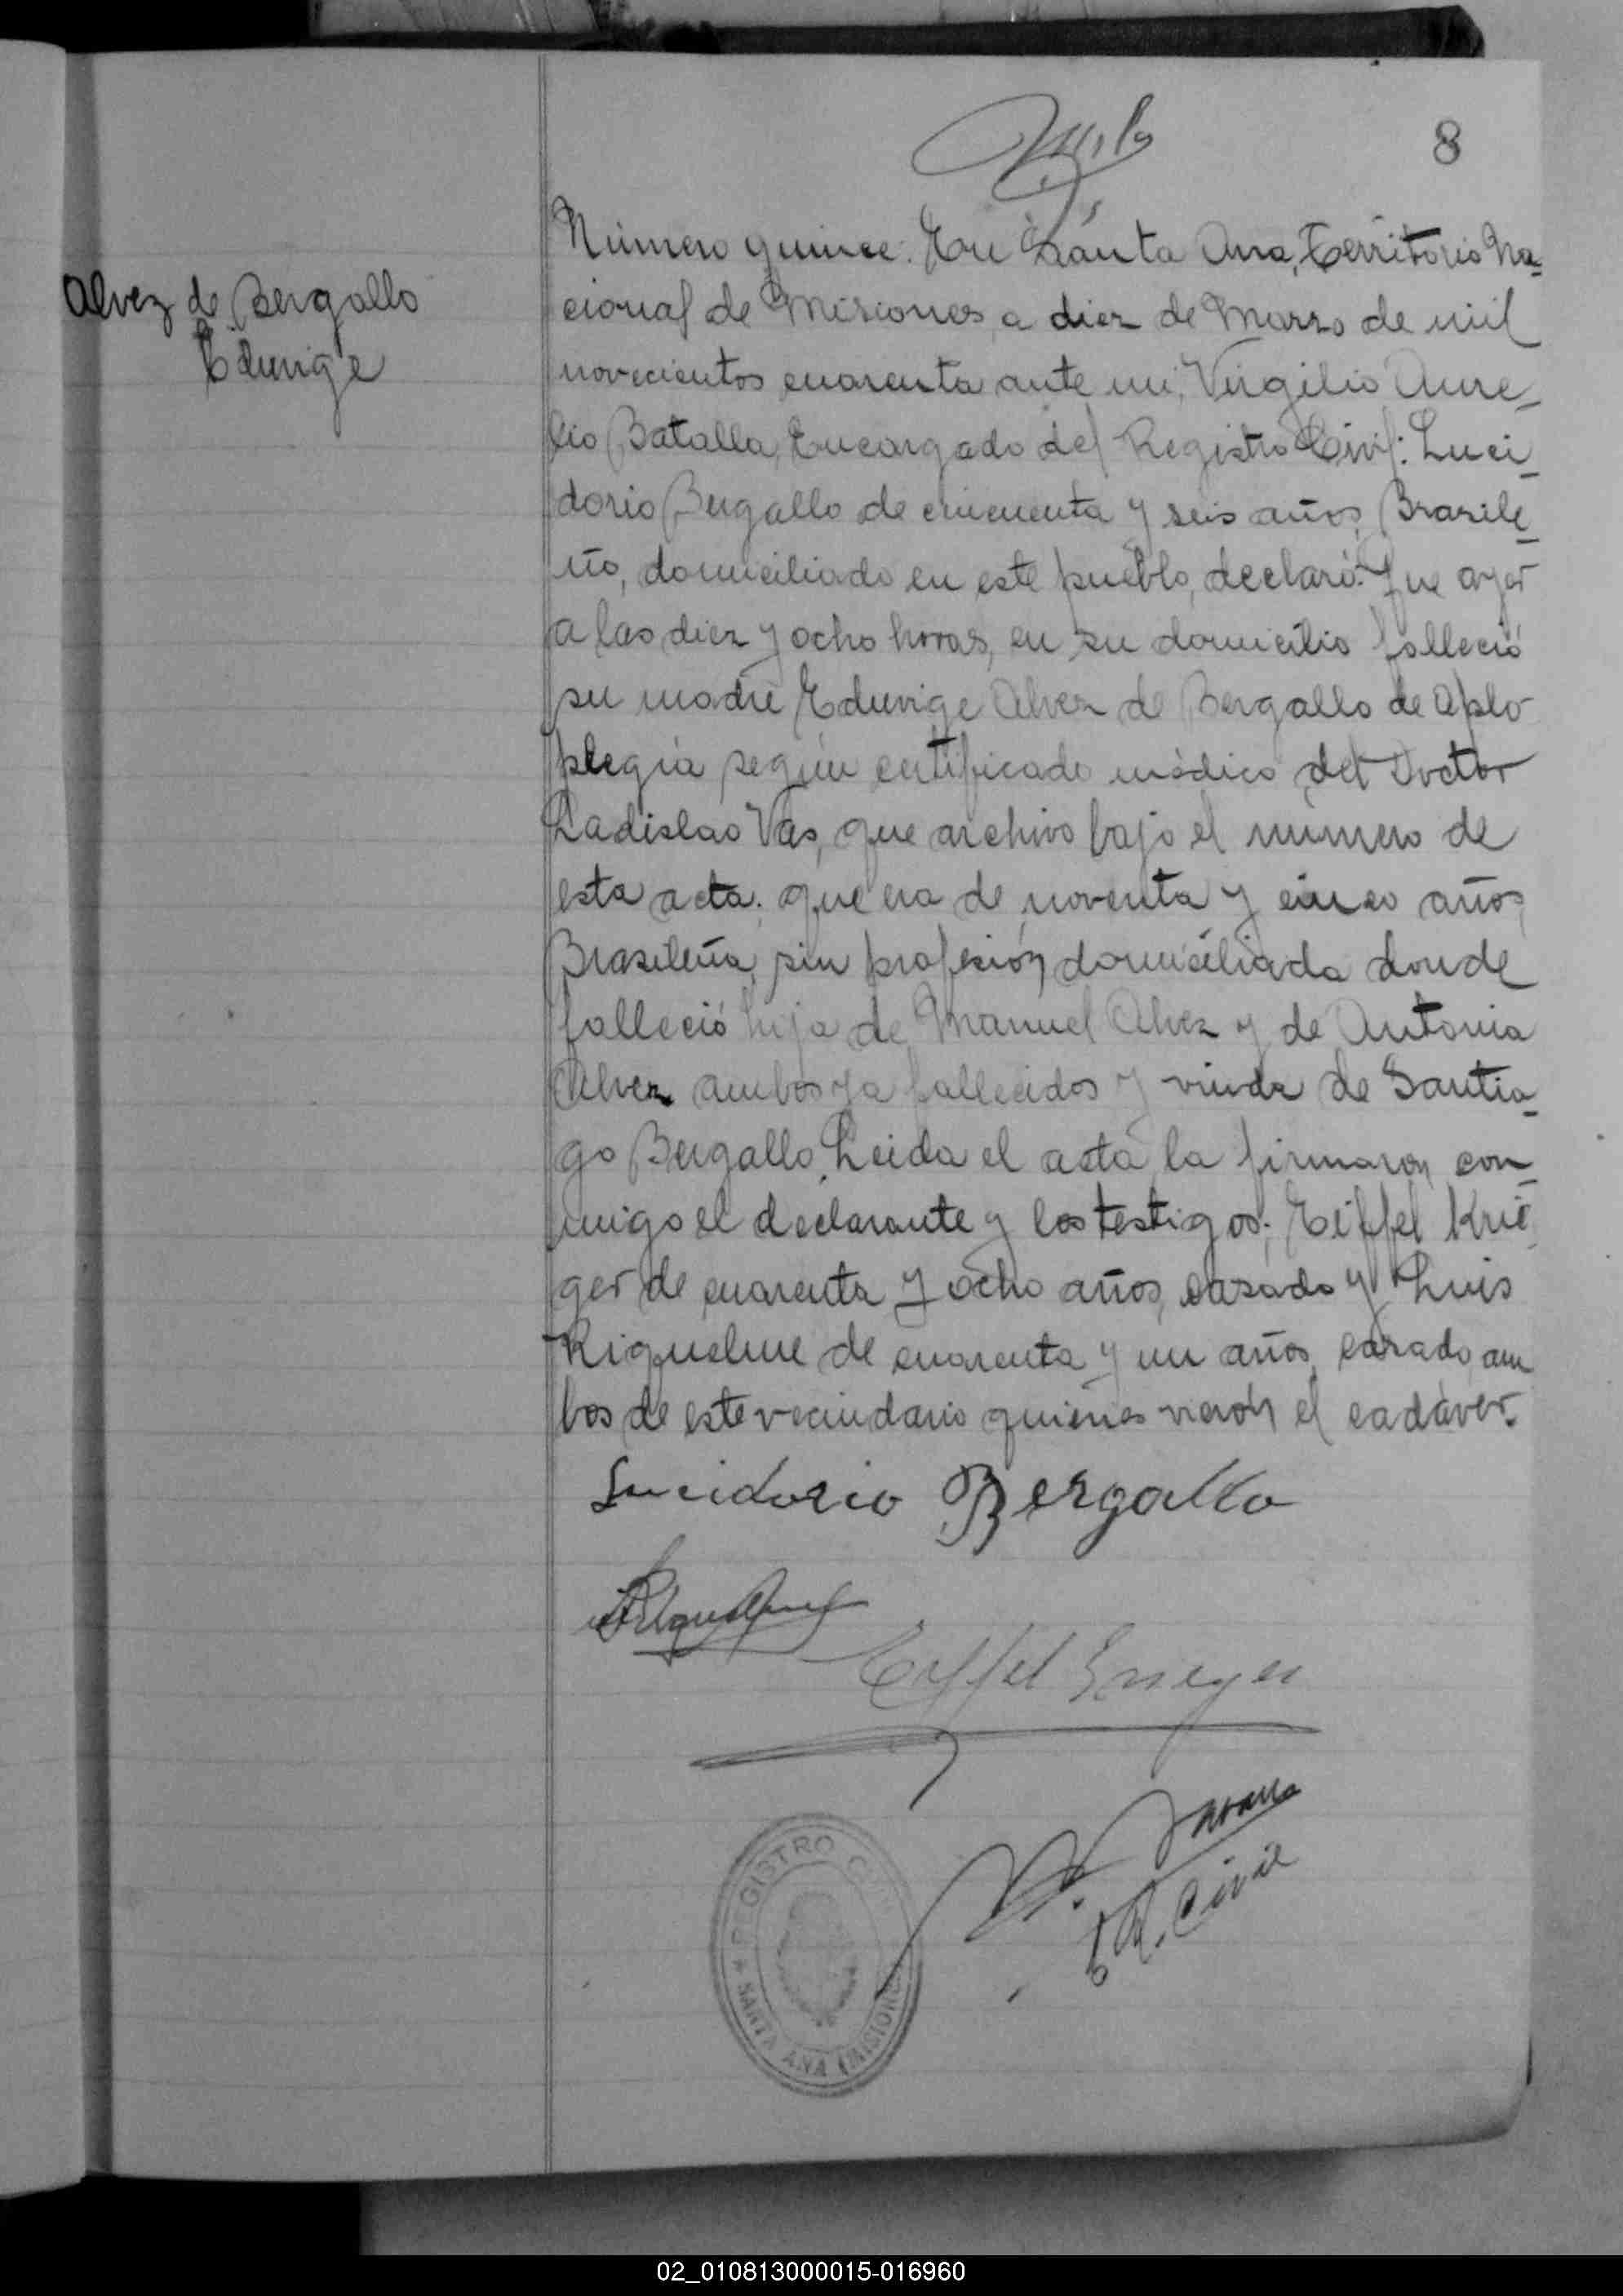 8
Alvez de Bergallo
Eduvige
Número quince: En Santa Ana, Territorio Na-
cional de Misiones, a diez de Marzo de mil
novecientos cuarenta ante mi, Virgilio Aure-
lio Batalla, Encargado del Registro Civil: Luci-
dorio Bergallo de cincuenta y seis años, Brasile-
ño, domiciliado en este pueblo, declaró: Que ayer
a las diez y ocho horas, en su domicilio falleció
su madre Eduvige Alvez de Bergallo de Aplo-
plegia según certificado médico del Doctor
Ladislao Vas, que archivo bajo el número de
esta acta; que era de noventa y cinco años,
Brasileña, sin profesión, domiciliada donde
falleció hija de Manuel Alvez y de Antonia
Alvez ambos ya fallecidos y viuda de Santia-
go Bergallo. Leida el acta, la firmaron con-
migo el declarante y los testigos: Eiffel Krie-
ger de cuarenta y ocho años, casado y Luis
Riquelme de cuarenta y un años, casado, am
bos de este vecindario quienes vierón el cadáver.
Lucidorio Bergallo
Eiffel Krieger
R. Civil
REGISTRO CIVIL
SANTA ANA (MISIONES)
02_010813000015-016960